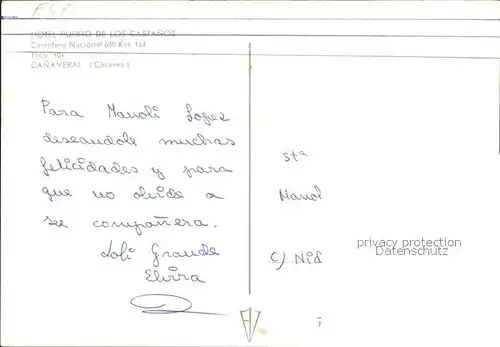 ESP
HOTEL PUERTO DE LOS CASTAÑOS
Carretera Nacional 630 Km. 168
Tfno. 101
CAÑAVERAL (Cáceres)
Para Manoli Lopez
deseandole muchas
felicidades y para
que no olvide a
su compañera.
Loli Grande
Elvira
Sta
Manol
C/ Nid
privacy protection
Datenschutz
F